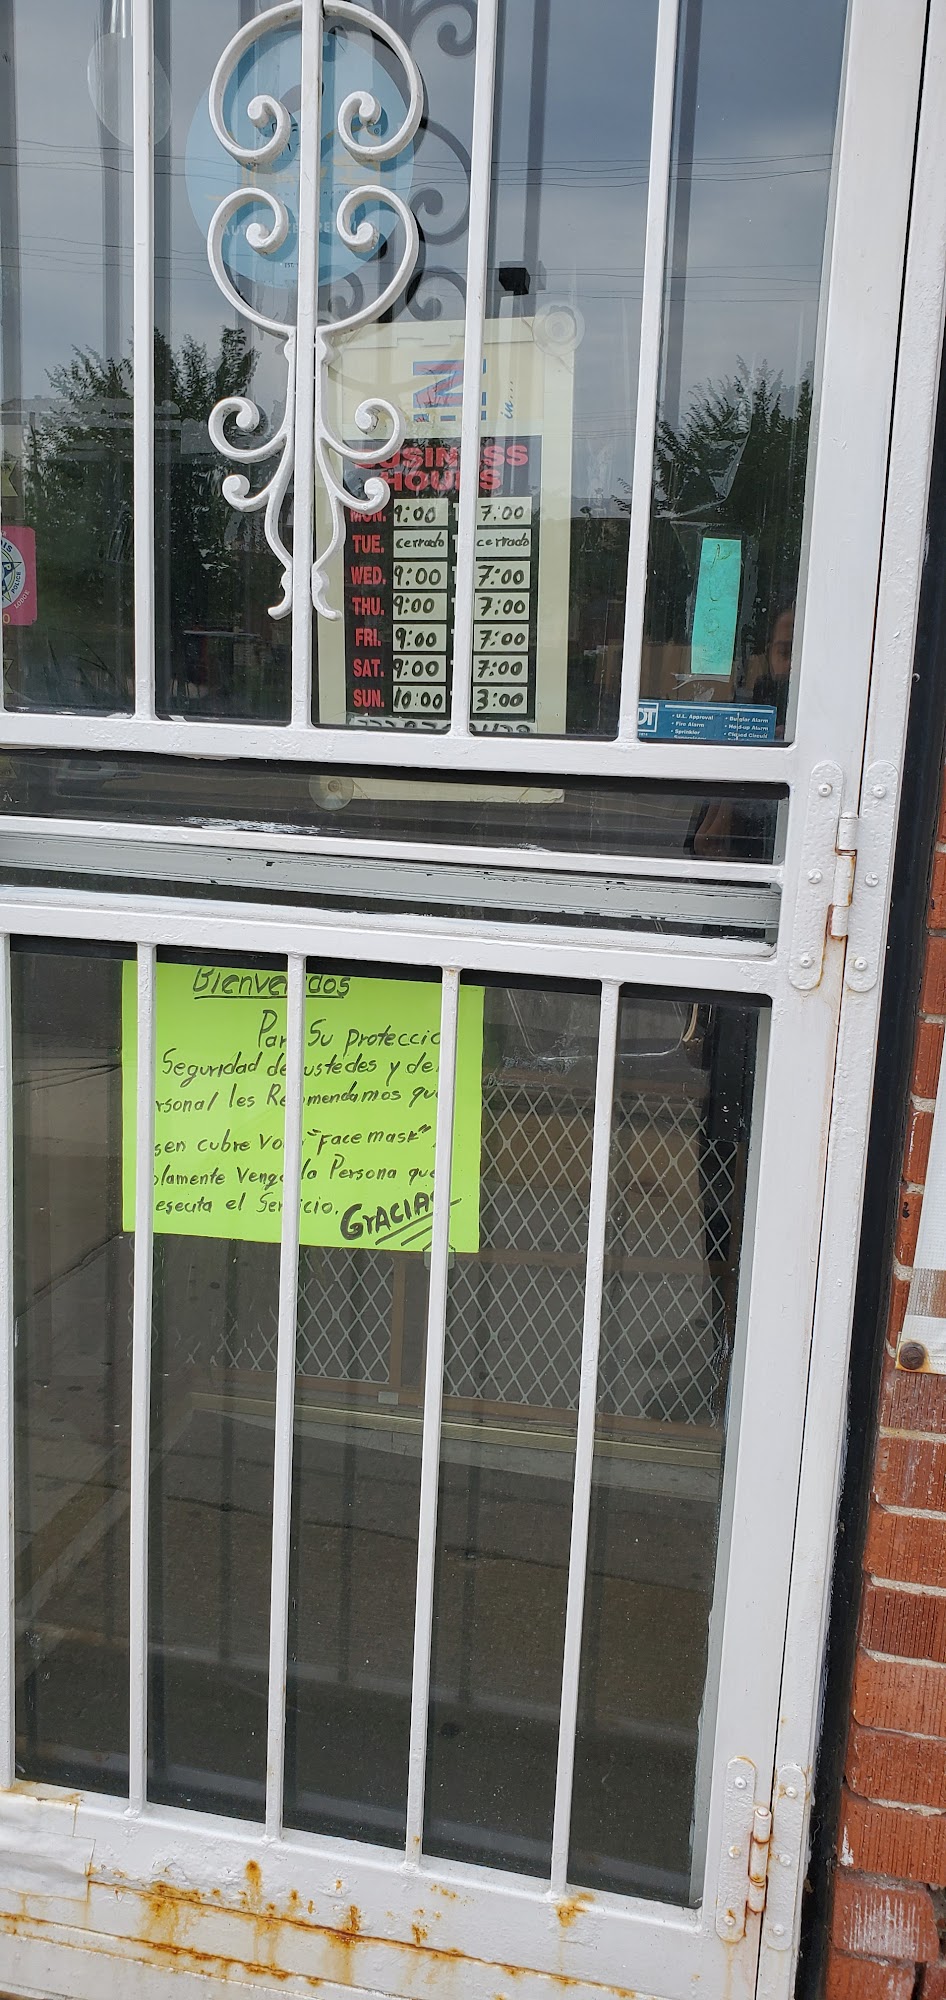 in...
BUSINESS
HOURS
MON. 9:00 7:00
TUE. cerrado cerrado
WED. 9:00 7:00
THU. 9:00 7:00
FRI. 9:00 7:00
SAT. 9:00 7:00
SUN. 10:00 3:00
POLICE
LODGE
• U.L. Approval
• Fire Alarm
• Sprinkler
• Burglar Alarm
• Hold-up Alarm
• Closed Circuit
Bienve dos
Par Su protecció
Seguridad de ustedes y de
rsonal les Re mendamos qu
sen cubre Vo "Face mask"
lamente Veng la Persona que
esecita el Ser icio.
GrACIAS